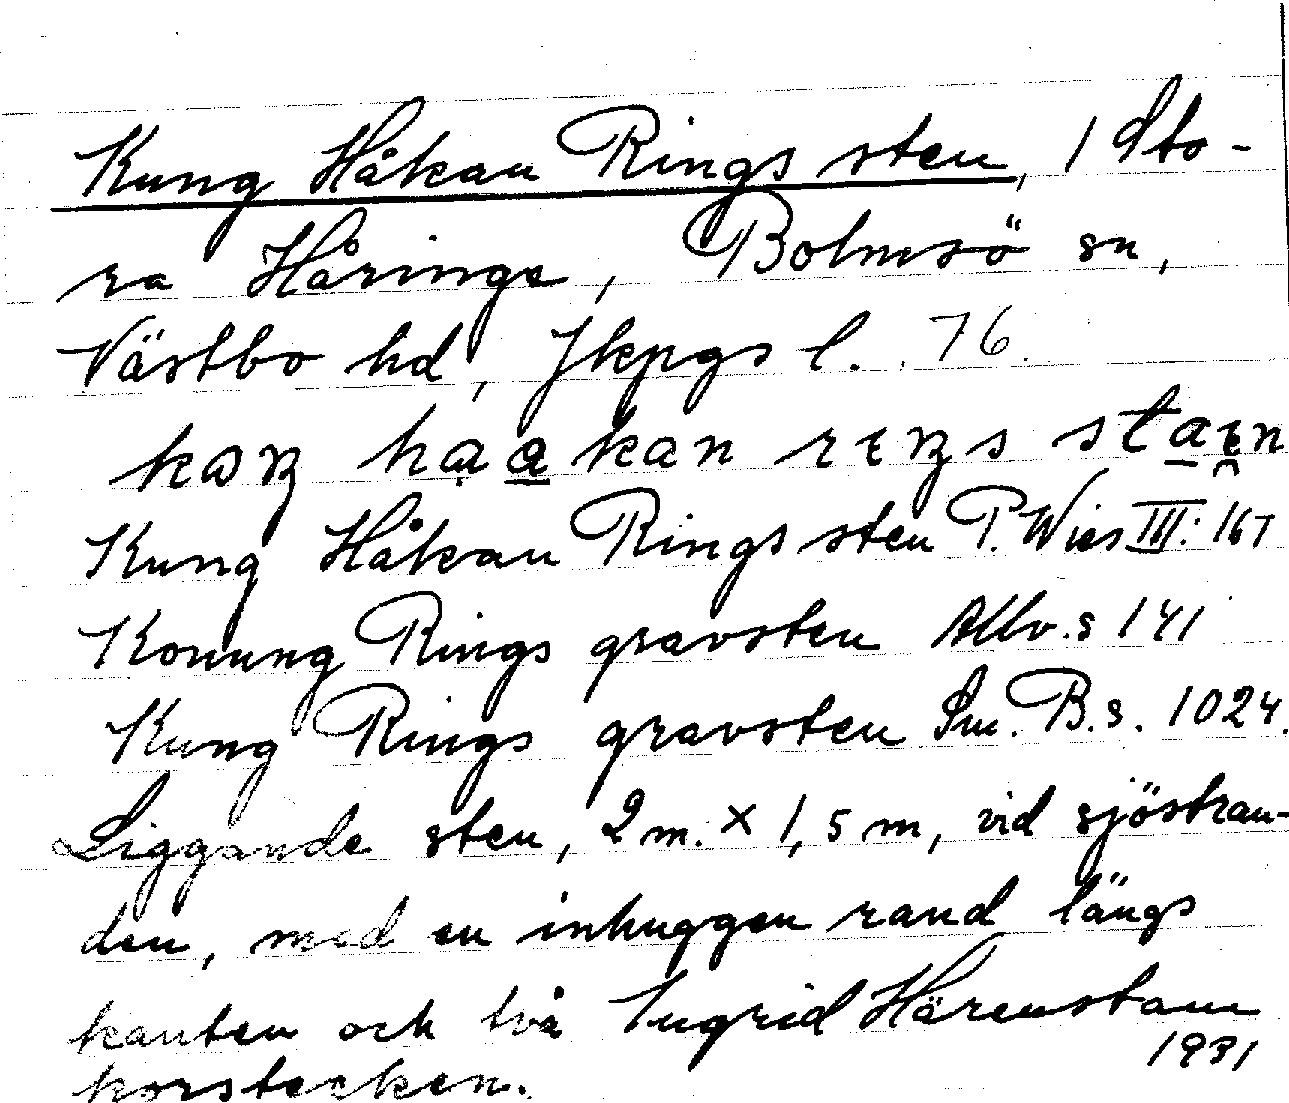 Kung Håkan Rings sten, 1 Sto-
ra Häringe, Bolmsö sn,
Västbo hd, Jkpgs l. 76.
Kung Håkan Rings sten P. Wies III: 167
Konung Rings gravsten Allv. s 141
Kung Rings gravsten Sm. B. s. 1024.
Liggande sten, 2 m. × 1,5 m, vid sjöstran-
den, med en inhuggen rand längs
kanten och två Ingrid Härenstam
korstecken. 1931